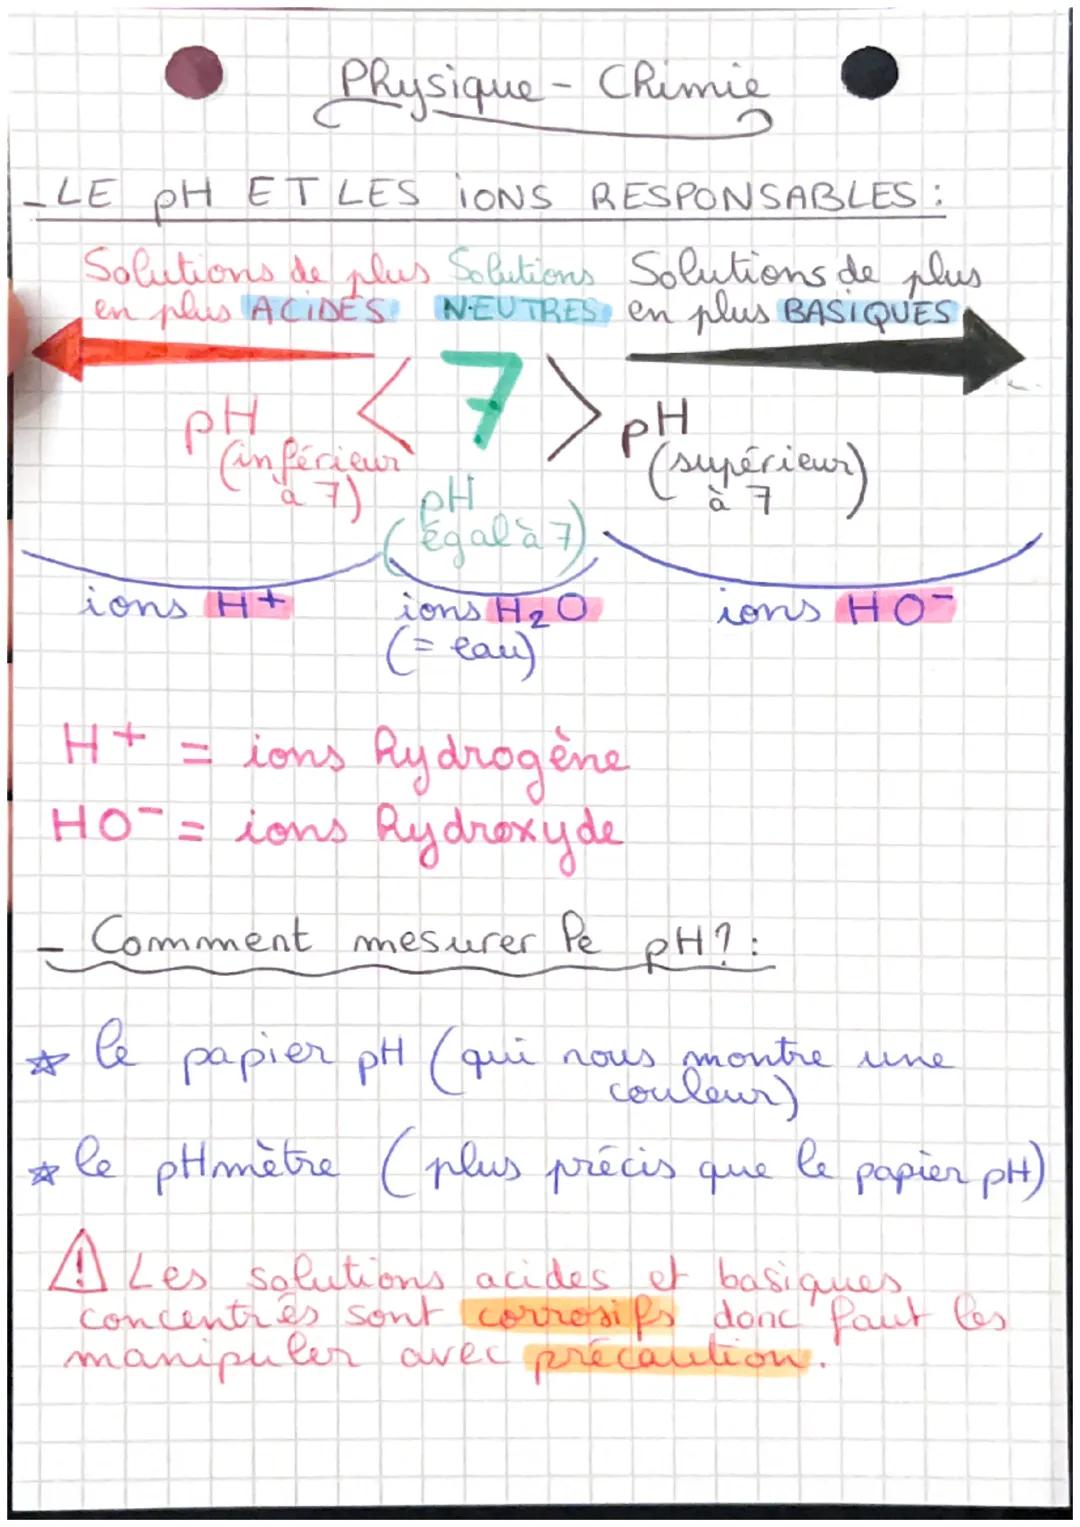 Physique - Chimie
- LE pH ET LES iONS RESPONSABLES :
Solutions de plus en plus ACiDES
Solutions NEUTRES
Solutions de plus en plus BASiQUES
pH < 7 > pH
(inférieur à 7)
pH (égal à 7)
(supérieur à 7)
ions H+
ions H₂O
(= eau)
ions HO⁻
H+ = ions hydrogène
HO⁻ = ions hydroxyde
- Comment mesurer le pH? :
☆ le papier pH (qui nous montre une
couleur)
☆ le pHmètre (plus précis que le papier pH)
! Les solutions acides et basiques
concentrés sont corrosifs donc faut les
manipuler avec précaution.